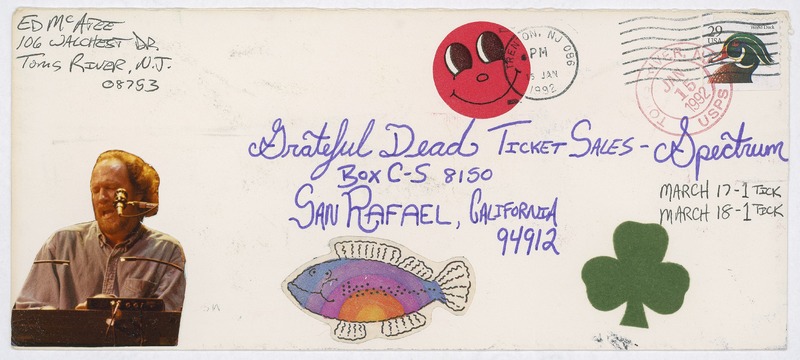 ED McATEE
106 WALCHEST DR.
TOMS RIVER, N.J.
08753
TRENTON, NJ 086
PM
15 JAN
1992
29
USA
Wood Duck
JAN
15
1992
USPS
Grateful Dead TICKET SALES - Spectrum
BOX C-S 8150
SAN RAFAEL, CALIFORNIA
94912
MARCH 17-1 TICK
MARCH 18-1 TICK